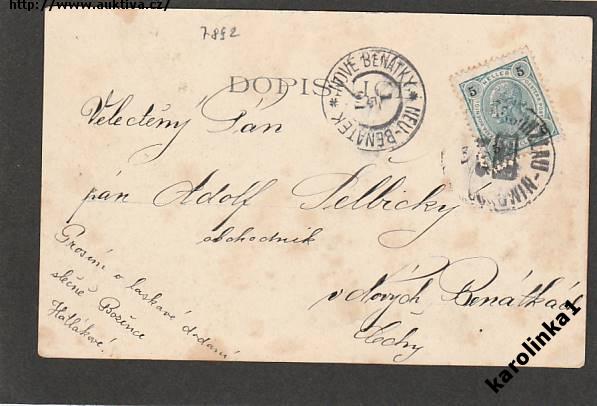 http://www.auktiva.cz/
7892
DOPISNICE
NOVÉ BENÁTKY * NEU-BENATEK *
5 HELLER 5
Velectěný Pán
pán Adolf
obchodník
v Nových Benátkách
Čechy
Prosím o laskavé dodání
slečně Božence
Hallákové!
karolinka1